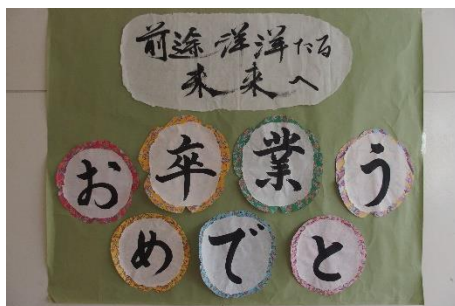 前途洋洋たる
未来へ
お卒業う
めでと